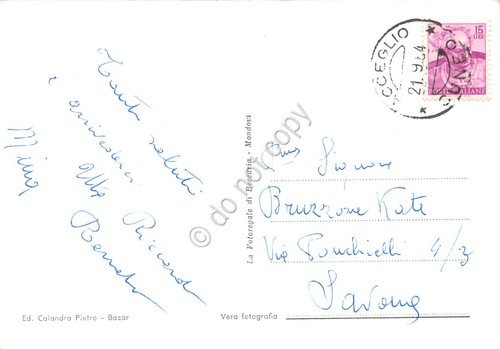 Tanti saluti
e arrivederci
alla
Riccardo
Renato
Mina
Ed. Calandra Pietro - Bazar
Vera fotografia
La Fotoregale di Beccaria - Mondovì
ACCEGLIO
21.9.64
CUNEO
15
LIRE
POSTE ITALIANE
Gma Signora
Bruzzone Kate
Via Ponchielli 4/3
Savona
© do not copy